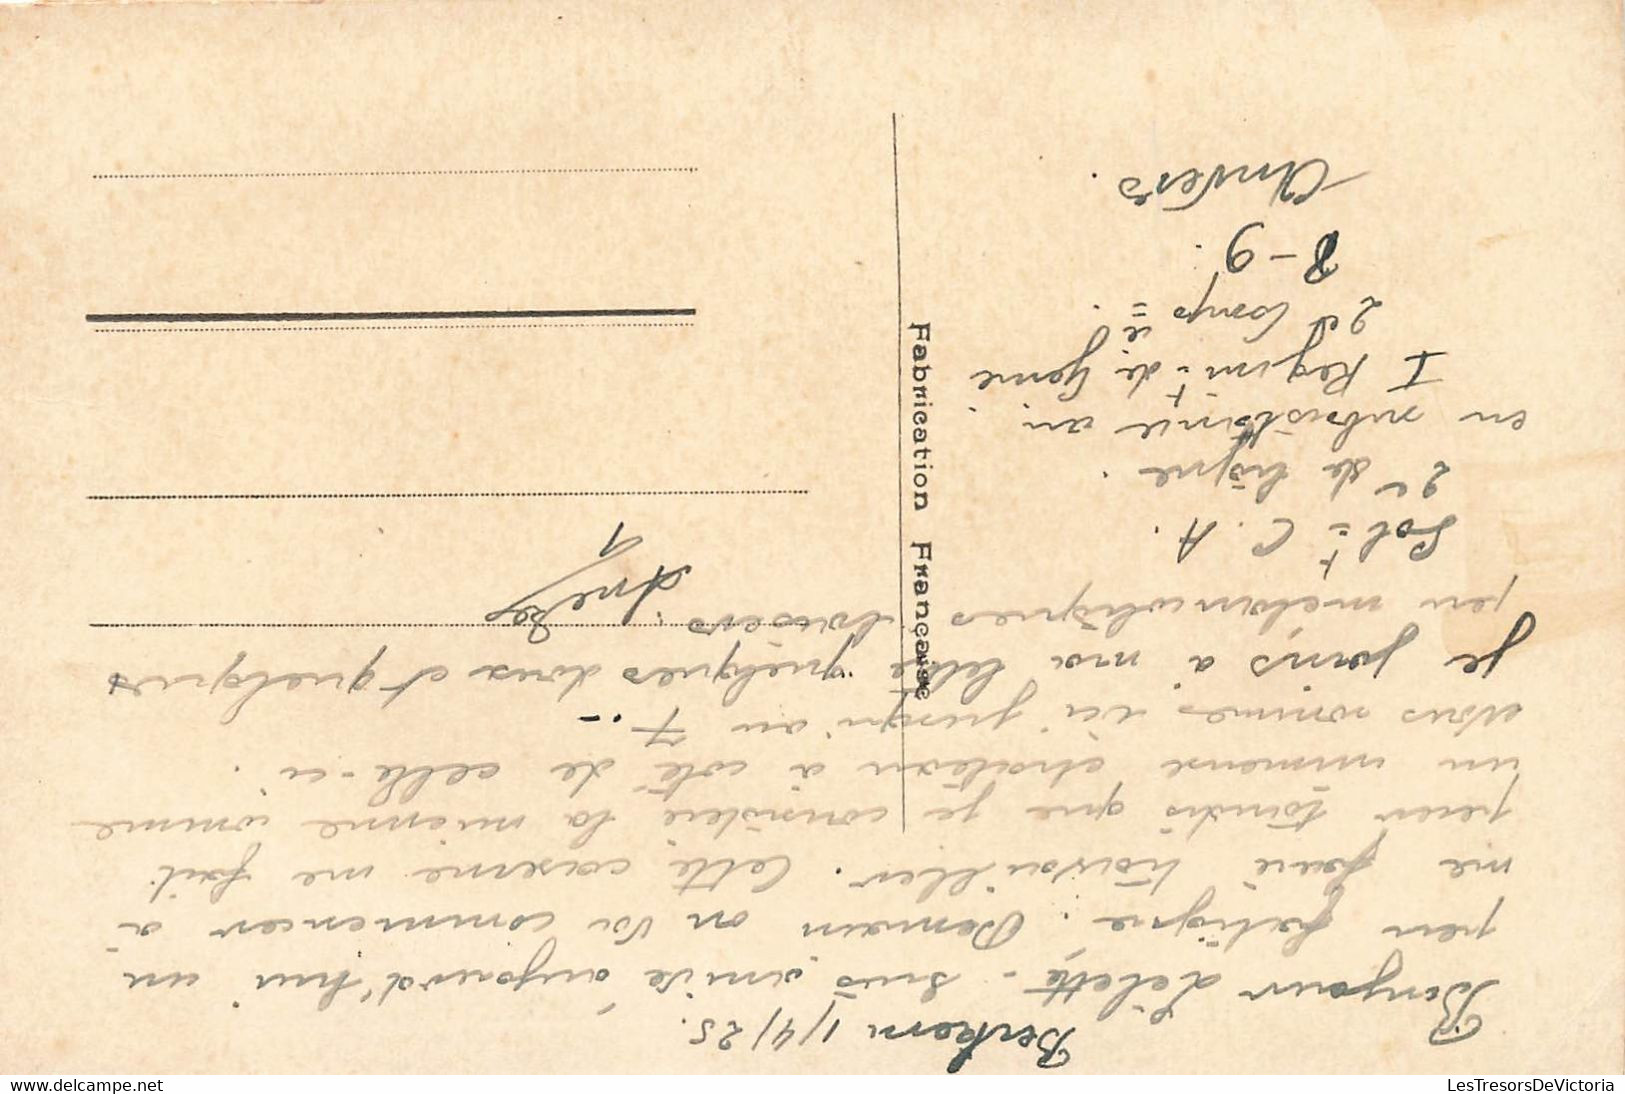 Berkem 1/4/25.
Bonjour Lélette - Suis arrivé aujourd'hui un
peu fatigué. Demain on va commencer à
me faire travailler. Cette caserne me fait
peur tandis que je considère la mienne comme
un immense chateau à côté de celle-ci.
Nous sommes ici jusqu'au 7..-
Je joins à ma lettre quelques doux et quelques
peu mélancoliques baisers.
Sol.t C.A.
2e de ligne.
en subsistance au
I Regim.t de Genie
2e Comp.ie
8-9.
Anvers.
Fabrication Française
delcampe.net
LesTresorsDeVictoria